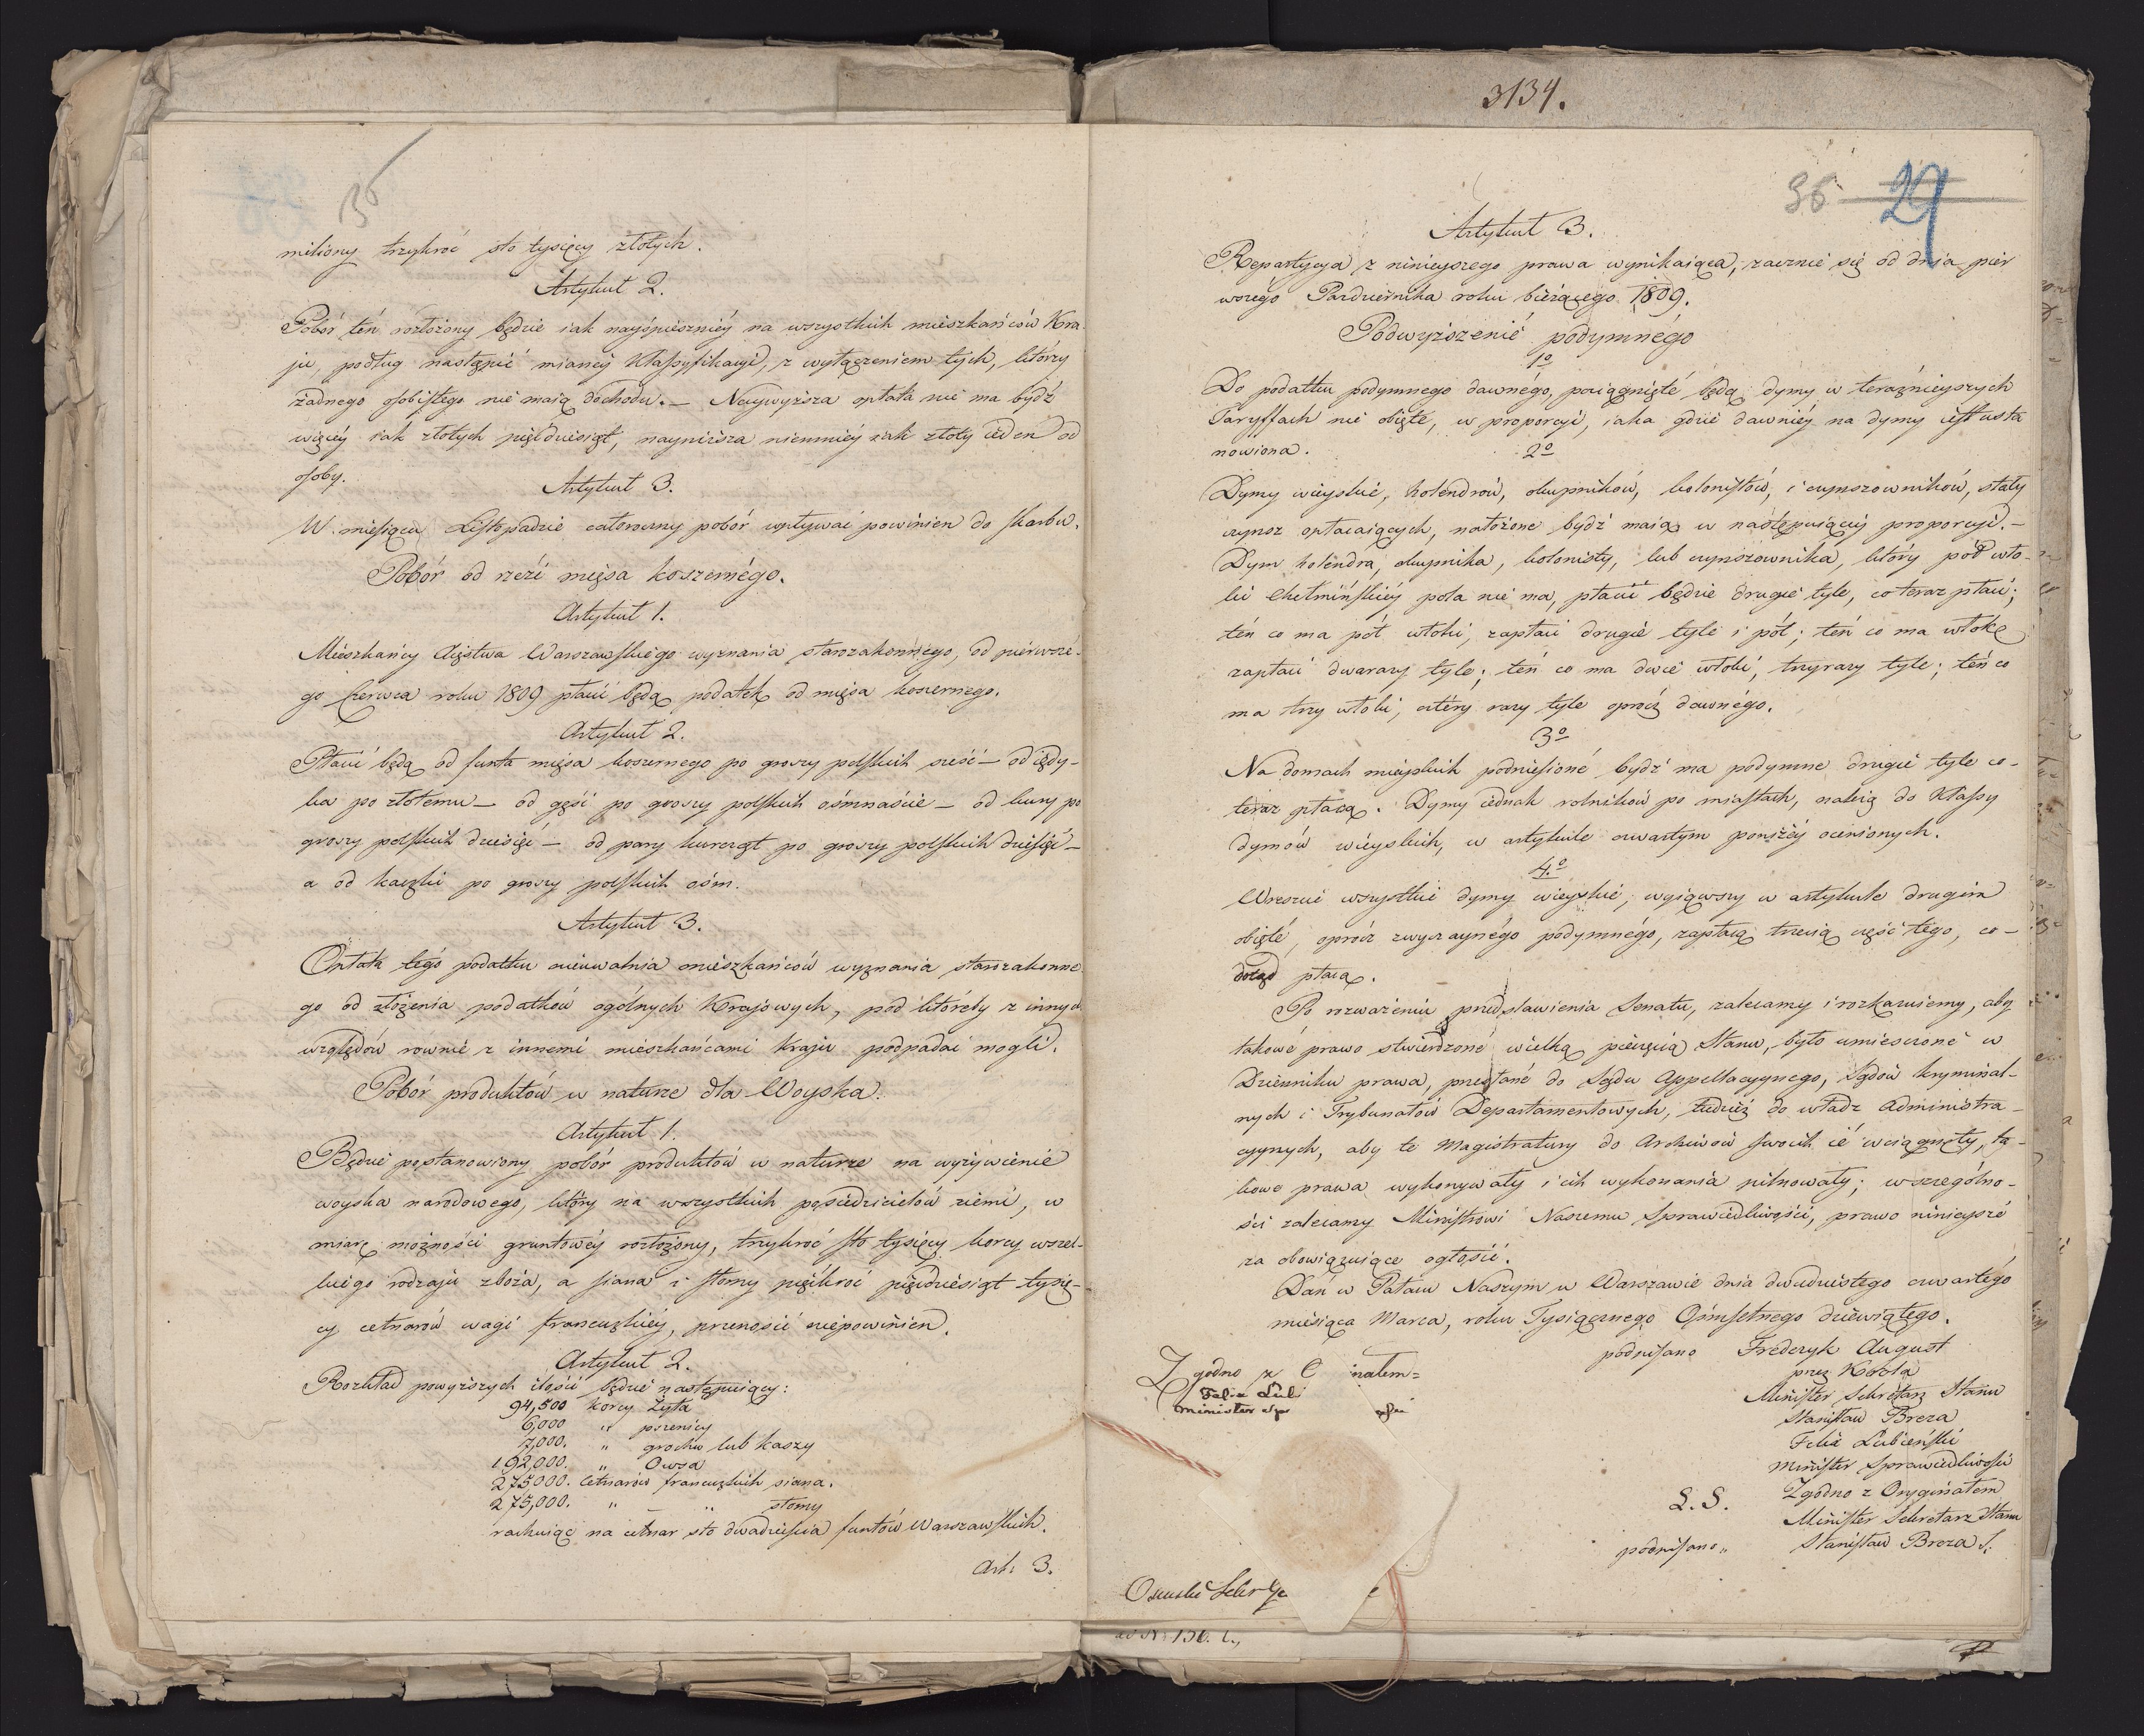 36
miliony trzykroć sto tysięcy złotych.
Artykuł 2.
Pobór ten rozłożony będzie iak nayśpieszniéy na wszystkich mieszkańców Kra-
ju, podług nastąpić mianéj Klassyfikacyi, z wyłączeniem tych, którzy
żadnego osobistego nie maią dochodu. — Naywyższa opłata nie ma bydź
więcéy iak złotych pięćdziesiąt, nayniższa niemniéy iak złoty ieden od
osoby.
Artykuł 3.
W miesiącu Listopadzie całoroczny pobór wpływać powinien do skarbu.
Pobór od rzezi mięsa koszernégo.
Artykuł 1.
Mieszkańcy Xięstwa Warszawskiégo wyznania starozakonnego, od piérwszé-
go Czerwca roku 1809 płacić będą podatek od mięsa koszernego.
Artykuł 2.
Płacić będą od funta mięsa koszernego po groszy polskich sześć — od iędy-
ka po złotemu — od gęsi po groszy polskich ośmnaście — od kury po
groszy polskich dziesięć — od pary kurcząt po groszy polskich dziesięć —
a od kaczki po groszy polskich ośm.
Artykuł 3.
Opłata tégo podatku nieuwalnia mieszkańców wyznania starozakonne
go od złożenia podatków ogólnych Krajowych, pod któréby z innych
względów rownie z innemi mieszkańcami Kraju podpadać mogli.
Pobór produktów w naturze dla Woyska.
Artykuł 1.
Będzie postanowiony pobór produktów w naturze na wyżywienie
woyska narodowego, który na wszystkich posiedzicielów ziemi, w
miarę możności gruntowéj rozłożony, trzykroć sto tysięcy korcy wszel-
kiégo rodzaju zboża, a siana i słomy pięćkroć pięćdziesiąt tysię-
cy cetnarów wagi francuzkiéy, przenosić niepowinien.
Artykuł 2.
Rozkład powyższych ilości będzie następuiący:
94,500 korcy żyta
6,000 " pszenicy
7,000. " grochu lub kaszy
192,000. " Owsa
275000. Cetnarów francuzkich siana.
275,000. " " słomy
rachuiąc na cetnar sto dwadzieścia funtów Warszawskich.
Art: 3.
3134.
36 29
Artykuł 3.
Repartycya z ninieyszego prawa wynikaiąca, zacznie się od dnia pier
wszégo Października roku bieżącego 1809.
Podwyższenié podymnégo
1º
Do podatku podymnego dawnégo, pociągnięté będą dymy w teraźnieyszych
Taryffach nie obięte, w proporcyi, iaka gdzie dawniéy na dymy iest usta
nowiona.
2º
Dymy wieyskie, holendrów, okupników, kolonistów, i czynszowników, stały
czynsz opłacaiących, nałożone bydź maią w następuiącéy proporcyi. —
Dym holéndra, okupnika, kolonisty, lub czynszownika, który pół wło-
ki chełmińskiéy pola nie ma, płacić będzie drugie tyle, co teraz płaci;
ten co ma pół włoki, zapłaci drugie tyle i pół; ten co ma włokę
zapłaci dwarazy tyle; ten co ma dwie włoki, trzyrazy tyle; ten co
ma trzy włoki, cztéry razy tyle oprócz dawnégo.
3º
Na domach mieyskich podniesioné bydź ma podymne drugie tyle co-
teraz płacą. Dymy iednak rolników po miastach, należą do Klassy
dymów wieyskich, w artykule czwartym poniżéy ocenionych.
4º
Wreszcie wszystkie dymy wieyskie, wyiąwszy w artykule drugim
obięte, oprócz zwyczaynégo podymnégo, zapłacą trzecią część tégo, co-
dotąd płacą.
Po rozważeniu przedstawienia Senatu, zalecamy i rozkazuiemy, aby
takowé prawo stwierdzoné wielką pieczęcią Stanu, było umieszczoné w
Dzienniku prawa, przesłané do Sądu Appellacyynego, Sądów kryminal-
nych i Trybunałów Departamentowych, tudzież do władz Administra-
cyynych, aby te Magistratury do Archiwów swoich ié wciągnęły, ta-
kowe prawa wykonywały i ich wykonania pilnowały; w szczególno-
ści zalecamy Ministrowi Naszemu Sprawiedliwości, prawo ninieyszé
za obowiązuiące ogłosić.
Dan w Pałacu Naszym w Warszawie dnia dwudziestego czwartégo
miesiąca Marca, roku Tysiącznego Ośmsetnego dziewiątego.
podpisano Fréderyk August
przez Króla
Minister Sekretarz Stanu
Stanisław Breza
Felix Łubieński
Minister Sprawiedliwości
L. S. Zgodno z Oryginałem
Minister Sekretarz Stanu
podpisano " Stanisław Breza
Zgodno z O inałem=
Felix Łubi
Minister Sp
Osiński Sekr